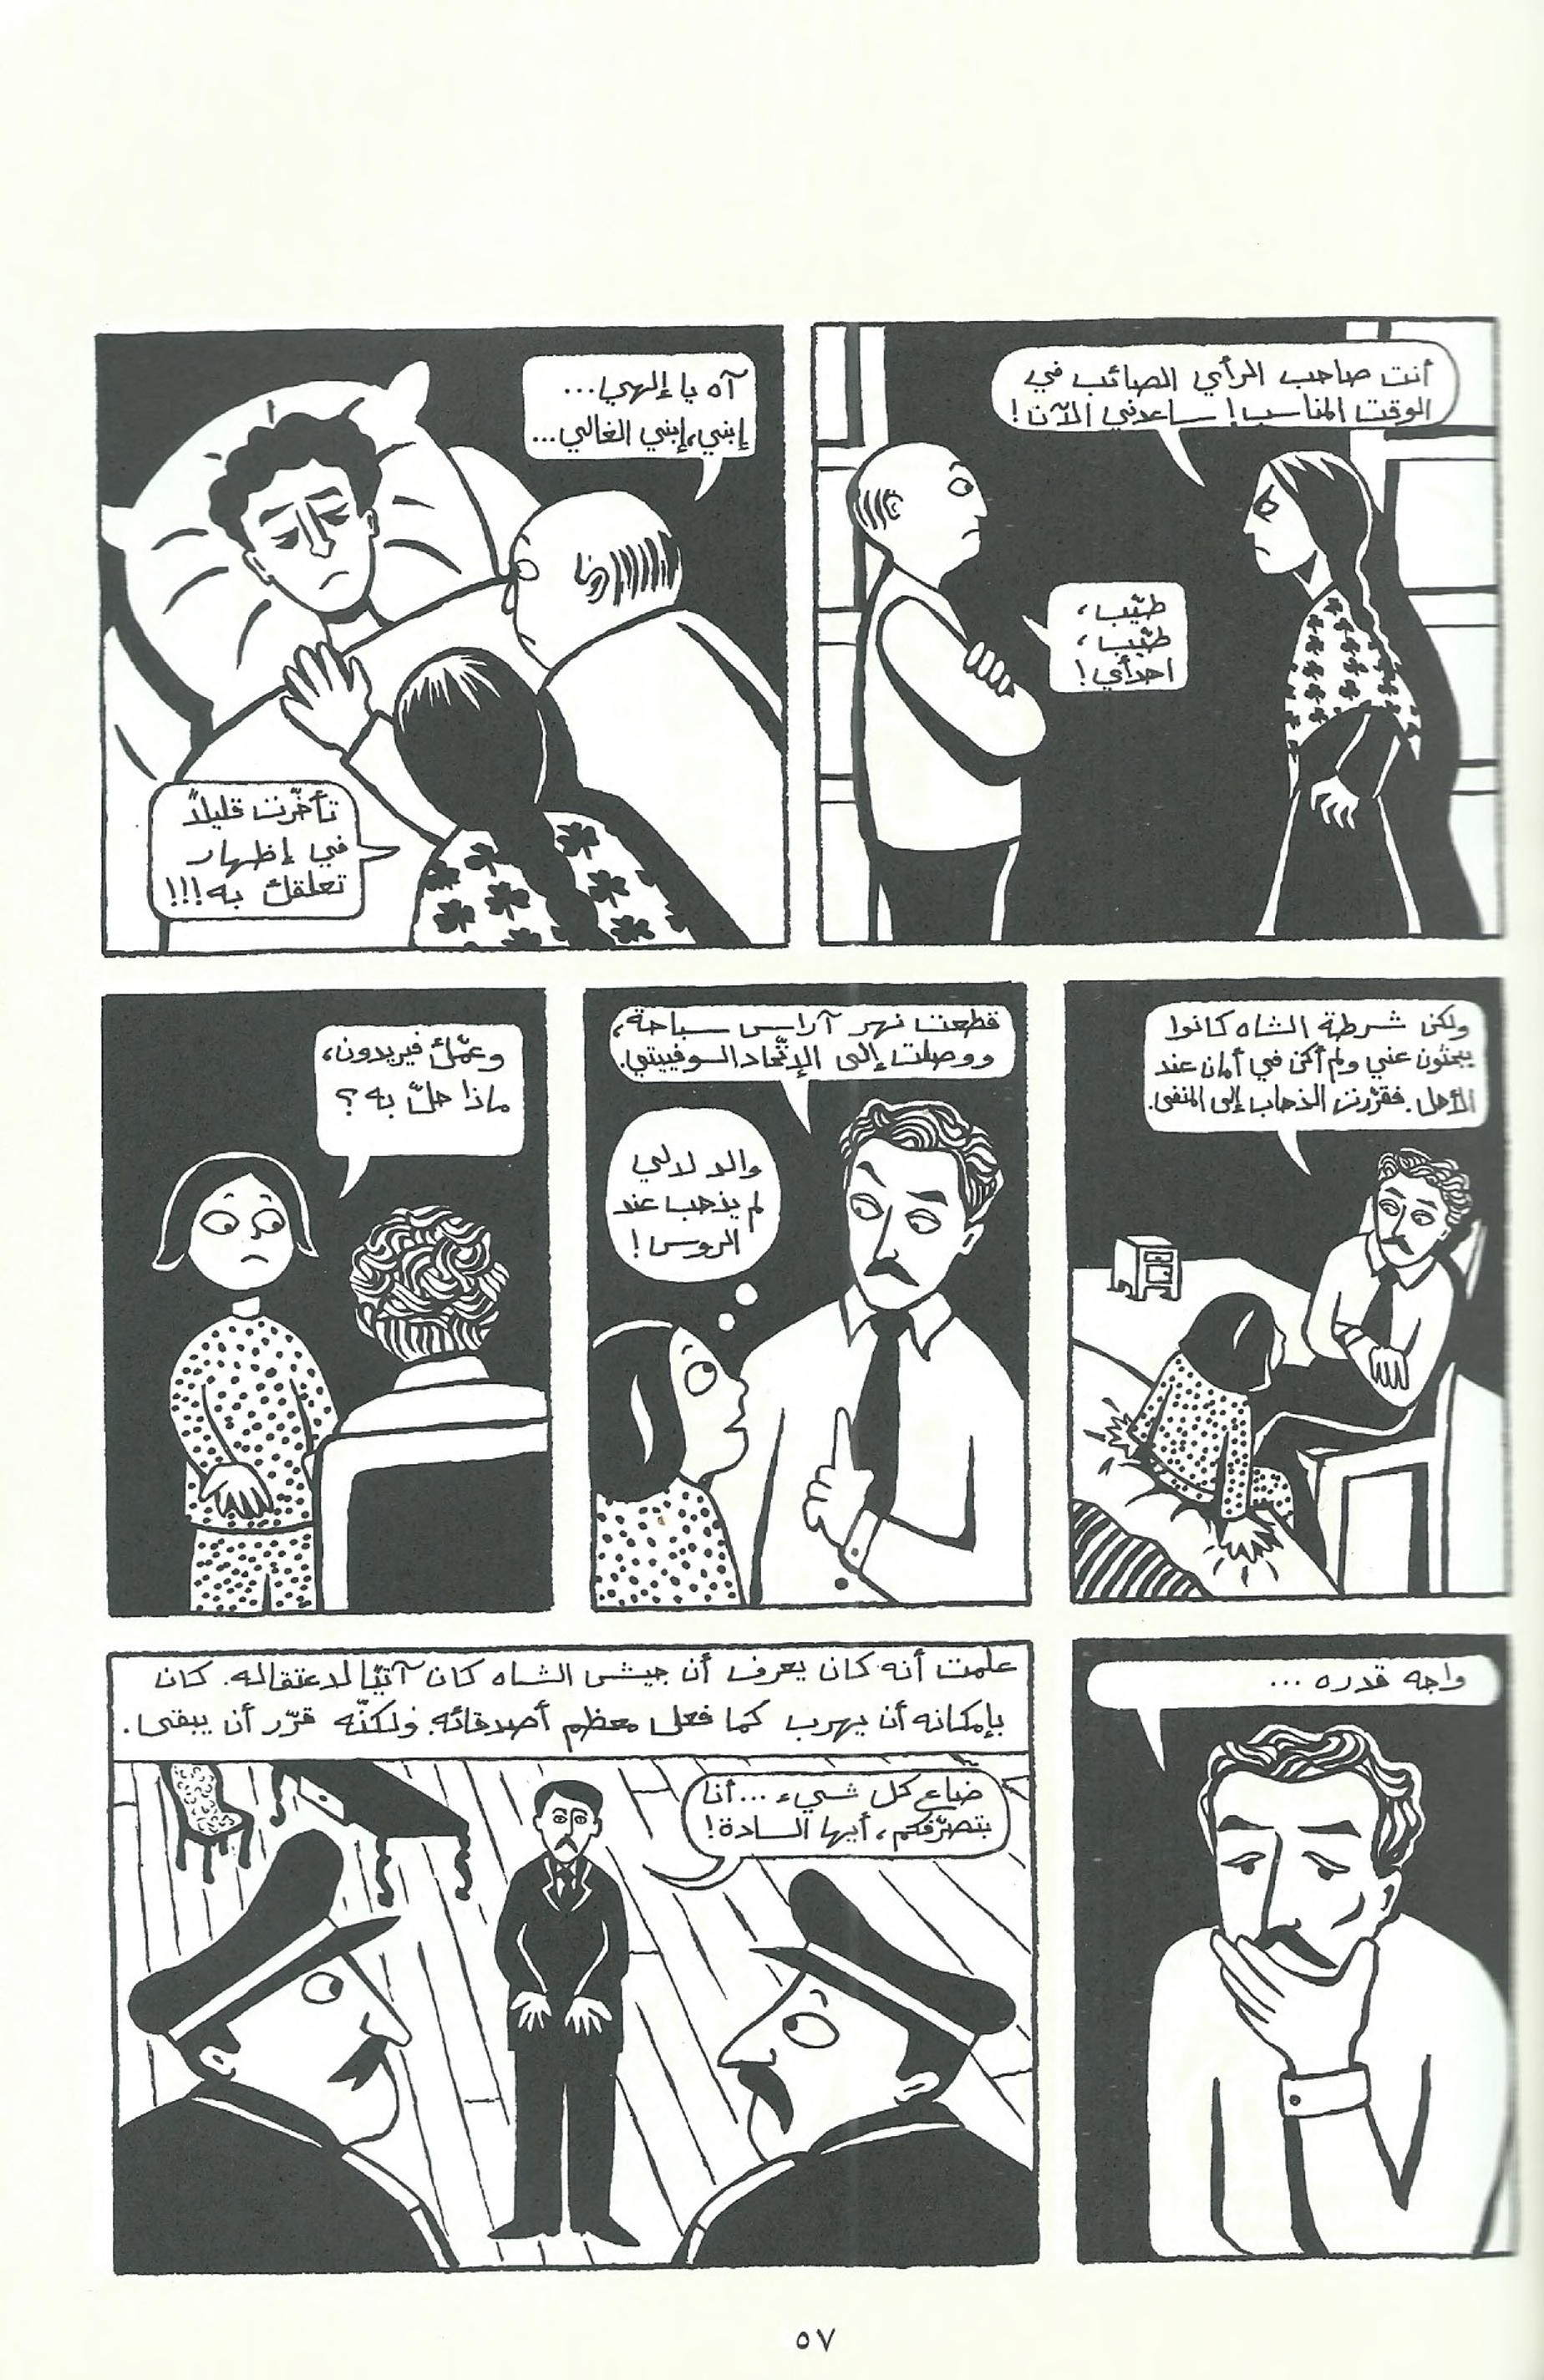 أنت صاحب الرأي الصائب في
الوقت المناسب! ساعدني الآن!
طيّب،
طيّب،
اهدأي!
آه يا إلهي...
إبني، إبني الغالي...
تأخّرت قليلاً
في إظهار
تعلقك به!!!
ولكن شرطة الشاه كانوا
يبحثون عني ولم أكن في أمان عند
الأهل. فقرّرت الذهاب إلى المنفى.
قطعت نهر آراس سباحة،
ووصلت إلى الإتّحاد السوفييتي.
والد لالي
لم يذهب عند
الروس!
وعمّك فيريدون،
ماذا حلّ به؟
واجه قدره...
علمت أنه كان يعرف أن جيش الشاه كان آتيًا لاعتقاله. كان
بإمكانه أن يهرب كما فعل معظم أصدقائه. ولكنّه قرّر أن يبقى.
ضاع كل شيء... أنا
بتصرّفكم، أيها السادة!
٥٧